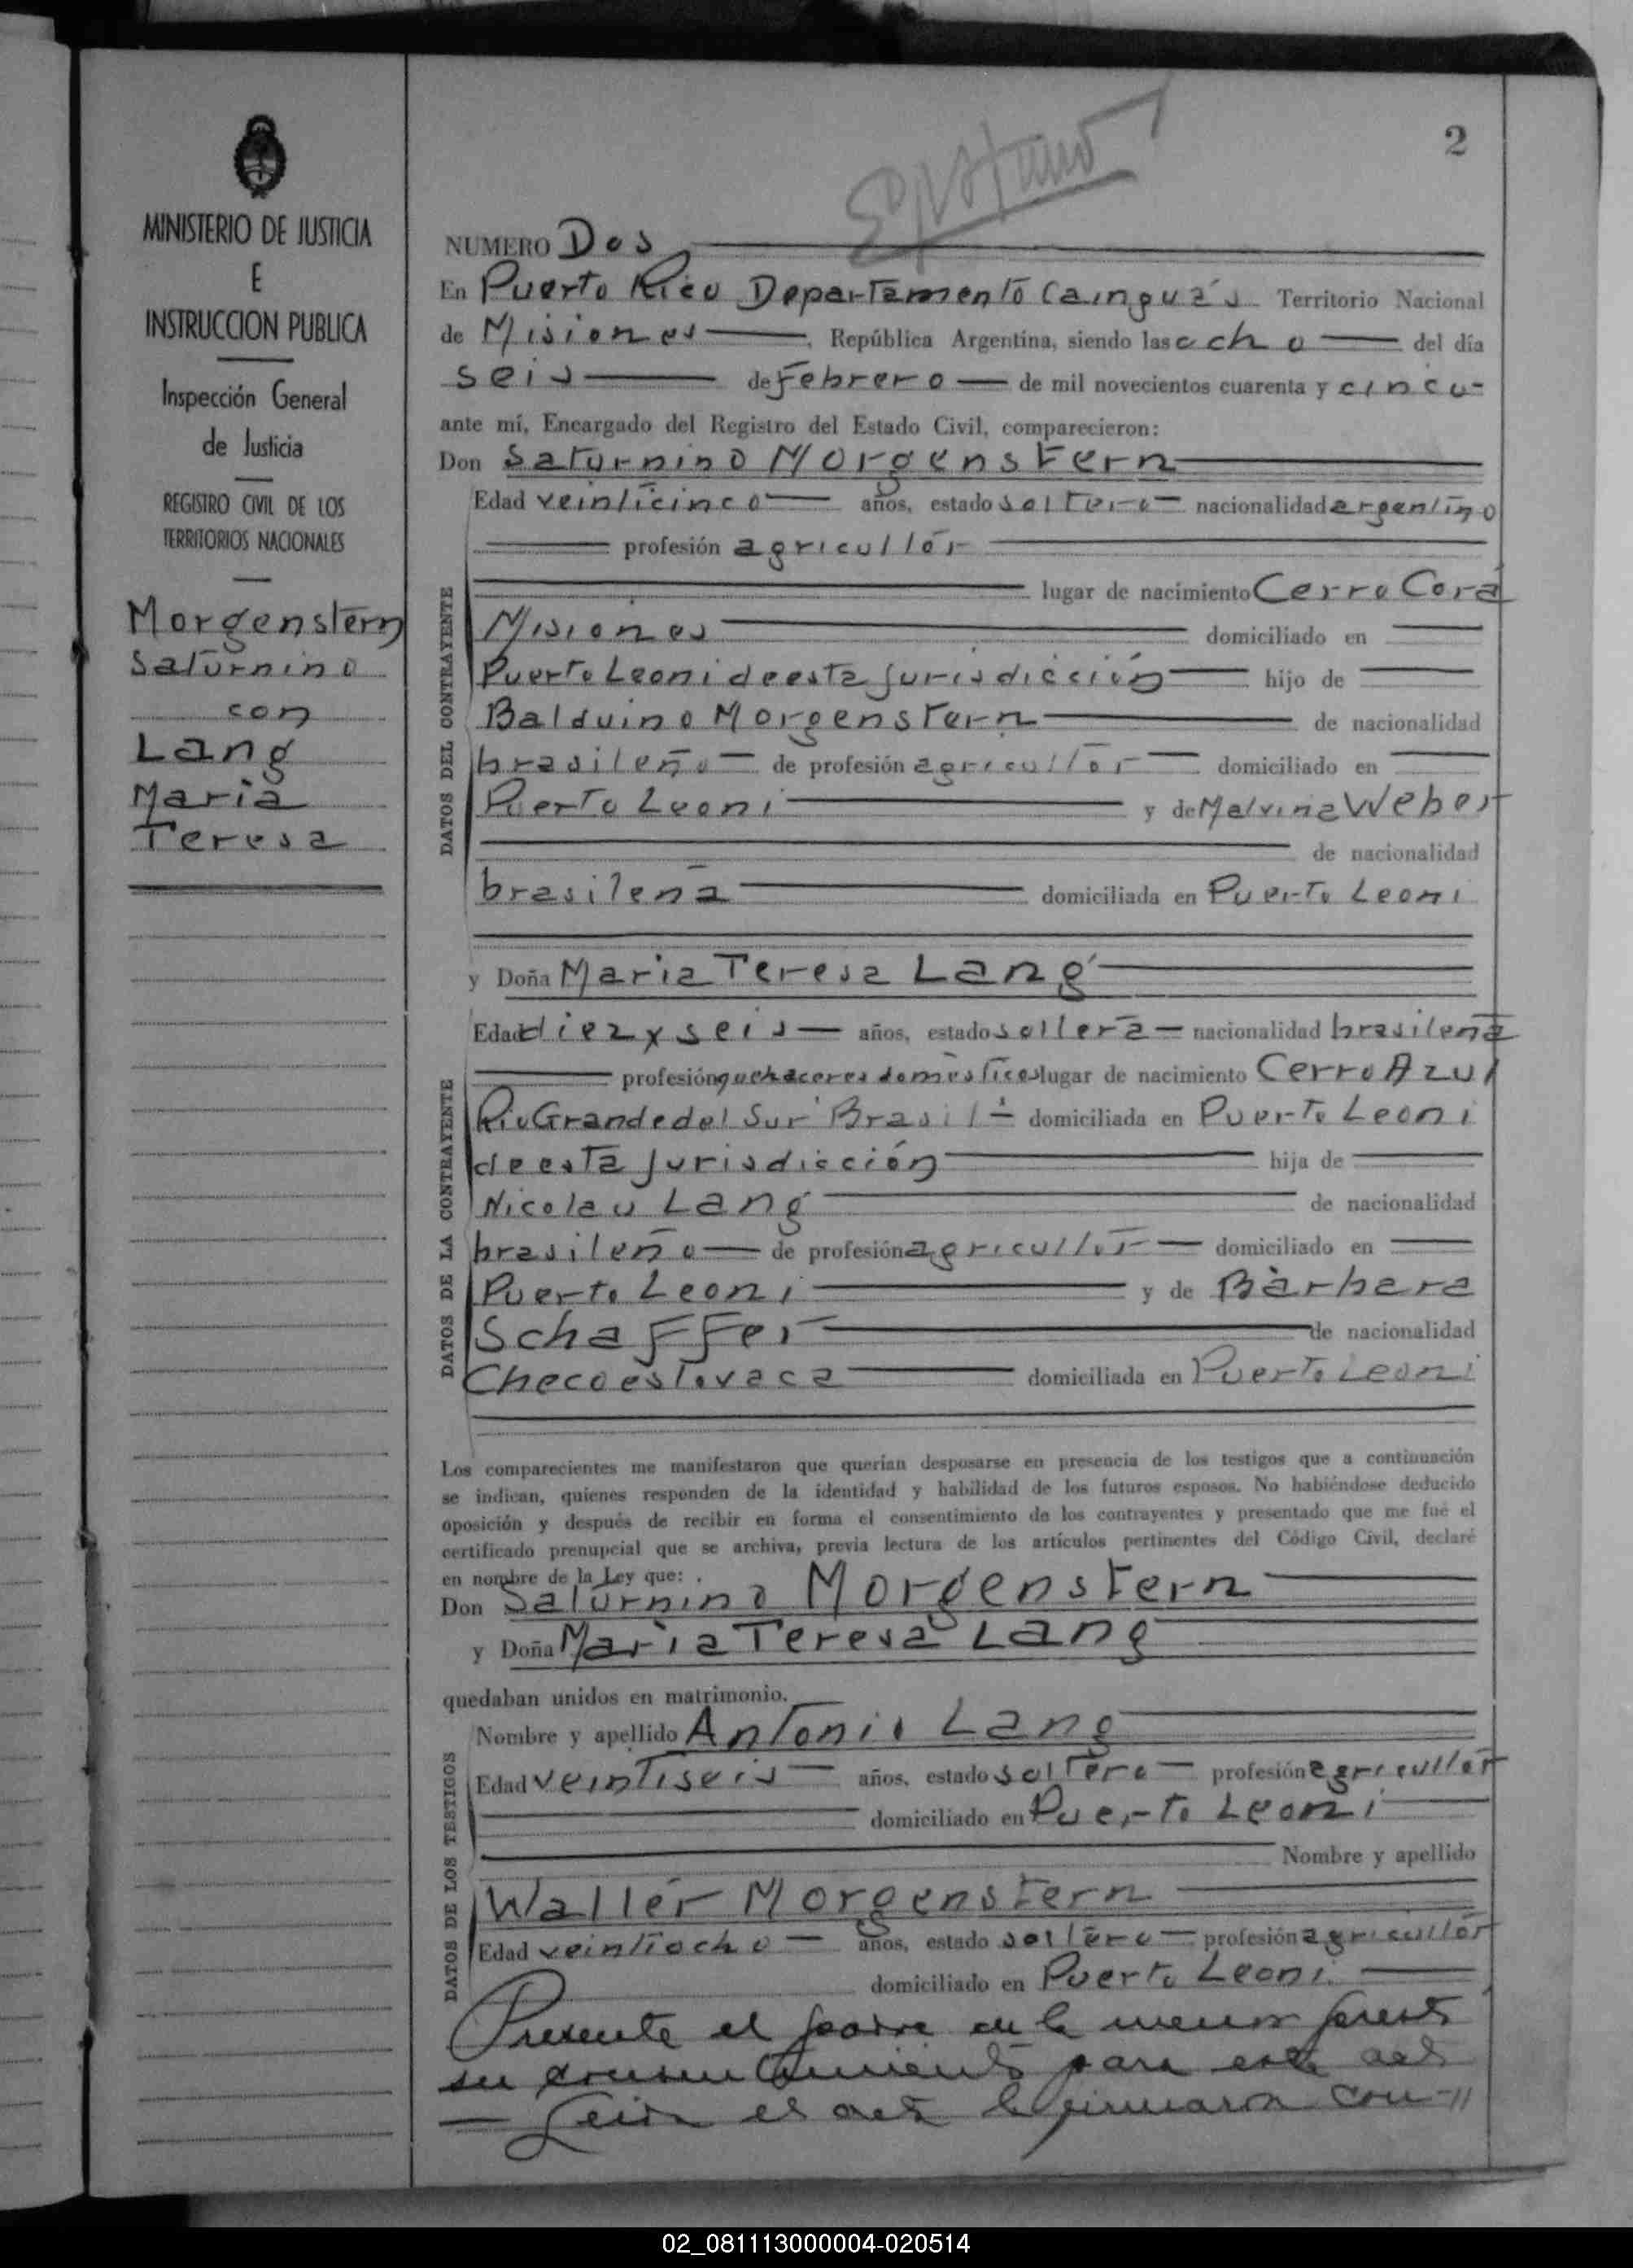 2
MINISTERIO DE JUSTICIA
E
INSTRUCCION PUBLICA
Inspección General
de Justicia
REGISTRO CIVIL DE LOS
TERRITORIOS NACIONALES
Morgenstern
Saturnino
con
Lang
Maria
Teresa
NUMERO Dos
En Puerto Rico Departamento Cainguás Territorio Nacional
de Misiones, República Argentina, siendo las ocho del día
seis de Febrero de mil novecientos cuarenta y cinco
ante mí, Encargado del Registro del Estado Civil, comparecieron:
Don Saturnino Morgenstern
DATOS DEL CONTRAYENTE
Edad veinticinco años, estado soltero nacionalidad argentino
profesión agricultor
lugar de nacimiento Cerro Corá
Misiones domiciliado en
Puerto Leoni de esta jurisdicción hijo de
Balduino Morgenstern de nacionalidad
brasileño de profesión agricultor domiciliado en
Puerto Leoni y de Malvina Weber
de nacionalidad
brasileña domiciliada en Puerto Leoni
y Doña Maria Teresa Lang
DATOS DE LA CONTRAYENTE
Edad diez y seis años, estado soltera nacionalidad brasileña
profesión quehaceres domèsticos lugar de nacimiento Cerro Azul
Rio Grande del Sur Brasil domiciliada en Puerto Leoni
de esta jurisdicción hija de
Nicolau Lang de nacionalidad
brasileño de profesión agricultor domiciliado en
Puerto Leoni y de Bàrbara
Schaffer de nacionalidad
Checoeslovaca domiciliada en Puerto Leoni
Los comparecientes me manifestaron que querían desposarse en presencia de los testigos que a continuación
se indican, quienes responden de la identidad y habilidad de los futuros esposos. No habiéndose deducido
oposición y después de recibir en forma el consentimiento de los contrayentes y presentado que me fué el
certificado prenupcial que se archiva, previa lectura de los artículos pertinentes del Código Civil, declaré
en nombre de la Ley que:
Don Saturnino Morgenstern
y Doña Maria Teresa Lang
quedaban unidos en matrimonio.
DATOS DE LOS TESTIGOS
Nombre y apellido Antonio Lang
Edad veintiseis años, estado soltero profesión agricultor
domiciliado en Puerto Leoni
Nombre y apellido
Walter Morgenstern
Edad veintiocho años, estado soltero profesión agricultor
domiciliado en Puerto Leoni
Presente el padre de la menor prestó
su consentimiento para este acto
Leida el acta la firmaron con-//
02_081113000004-020514